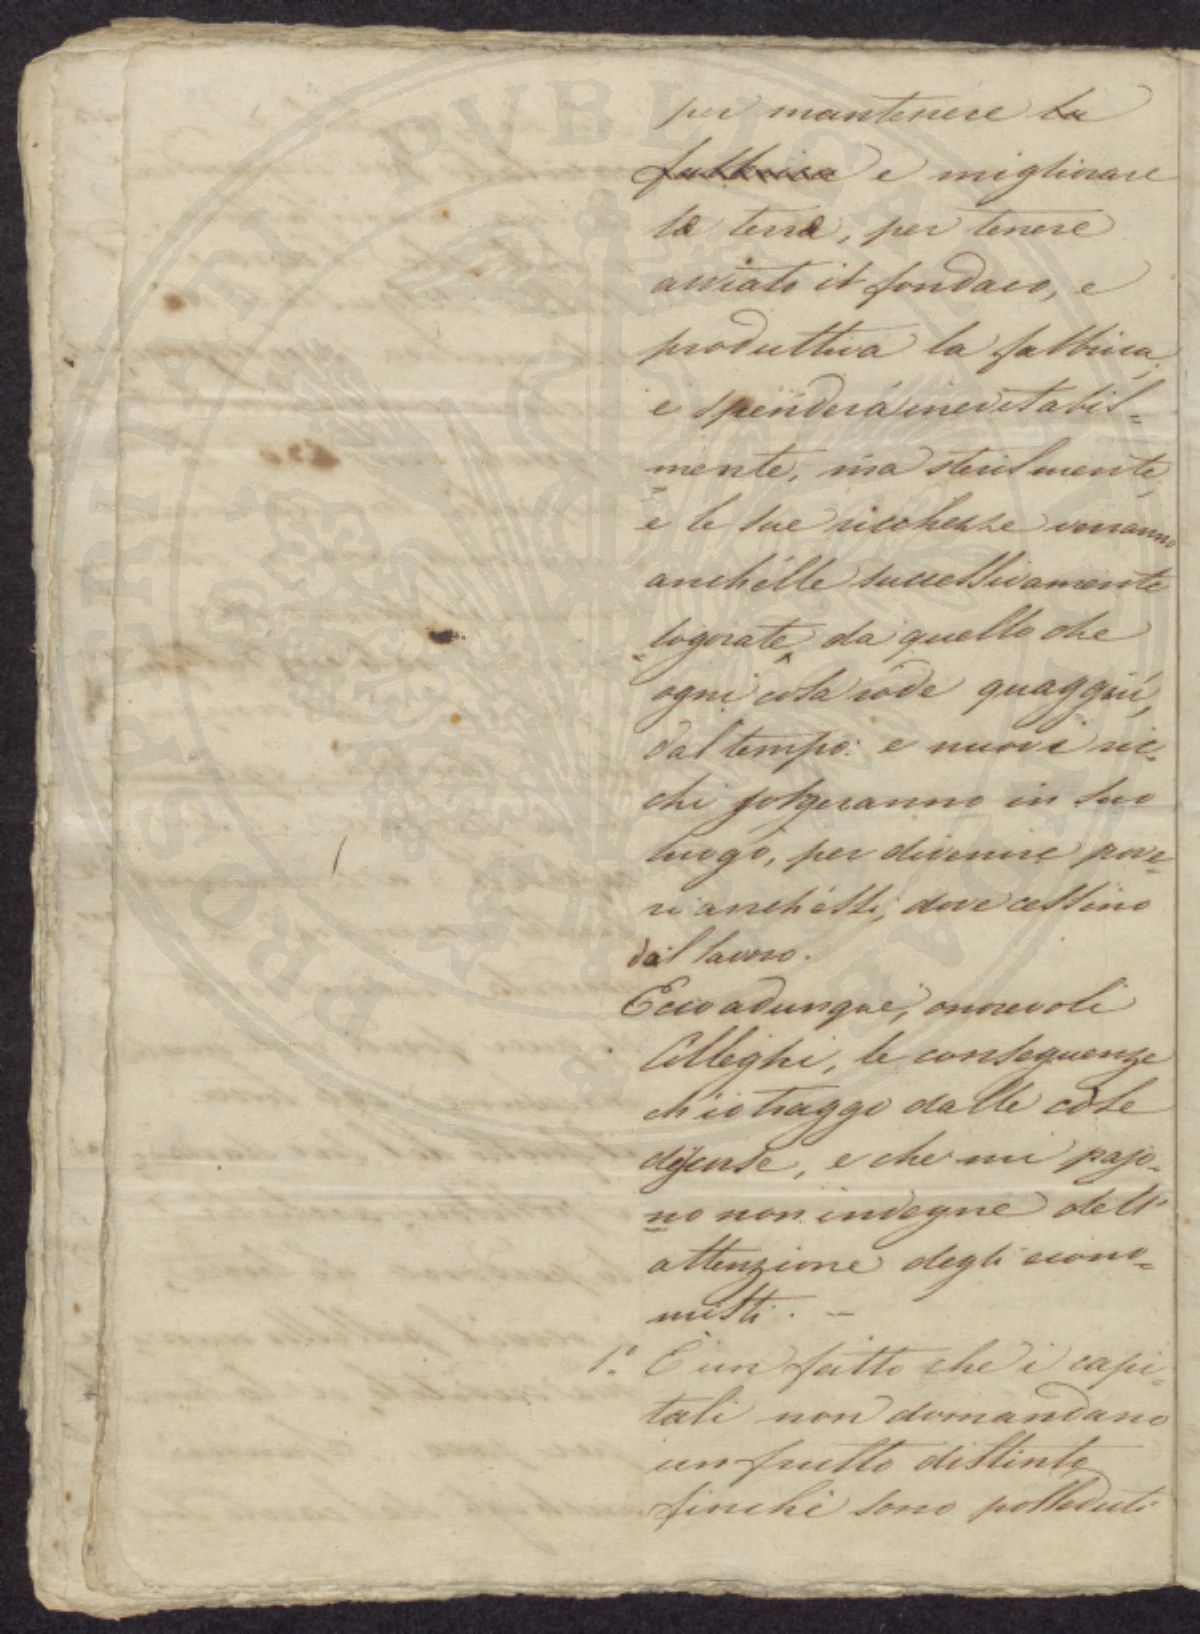 per mantenere la
fabbrica e migliorare
la terra, per tenere
avviato il fondaco, e
produttiva la fabbrica,
e spenderà inevitabil=
=mente, ma sterilmente,
e le sue ricchezze verranno
anch'elle successivamente
logorate da quello che
ogni cosa rode quaggiù,
dal tempo: e nuovi ric=
chi sorgeranno in suo
luogo, per divenire pove=
ri anch'essi, dove cessino
dal lavoro.
Ecco adunque, onorevoli
Colleghi, le conseguenze
ch'io traggo dalle cose
discorse, e che mi pajo=
=no non indegne dell'
attenzione degli econo=
misti. —
1.° È un fatto che i capi=
tali non domandano
un frutto distinto,
finchè sono posseduti
PROSPERITATI PVBLICAE